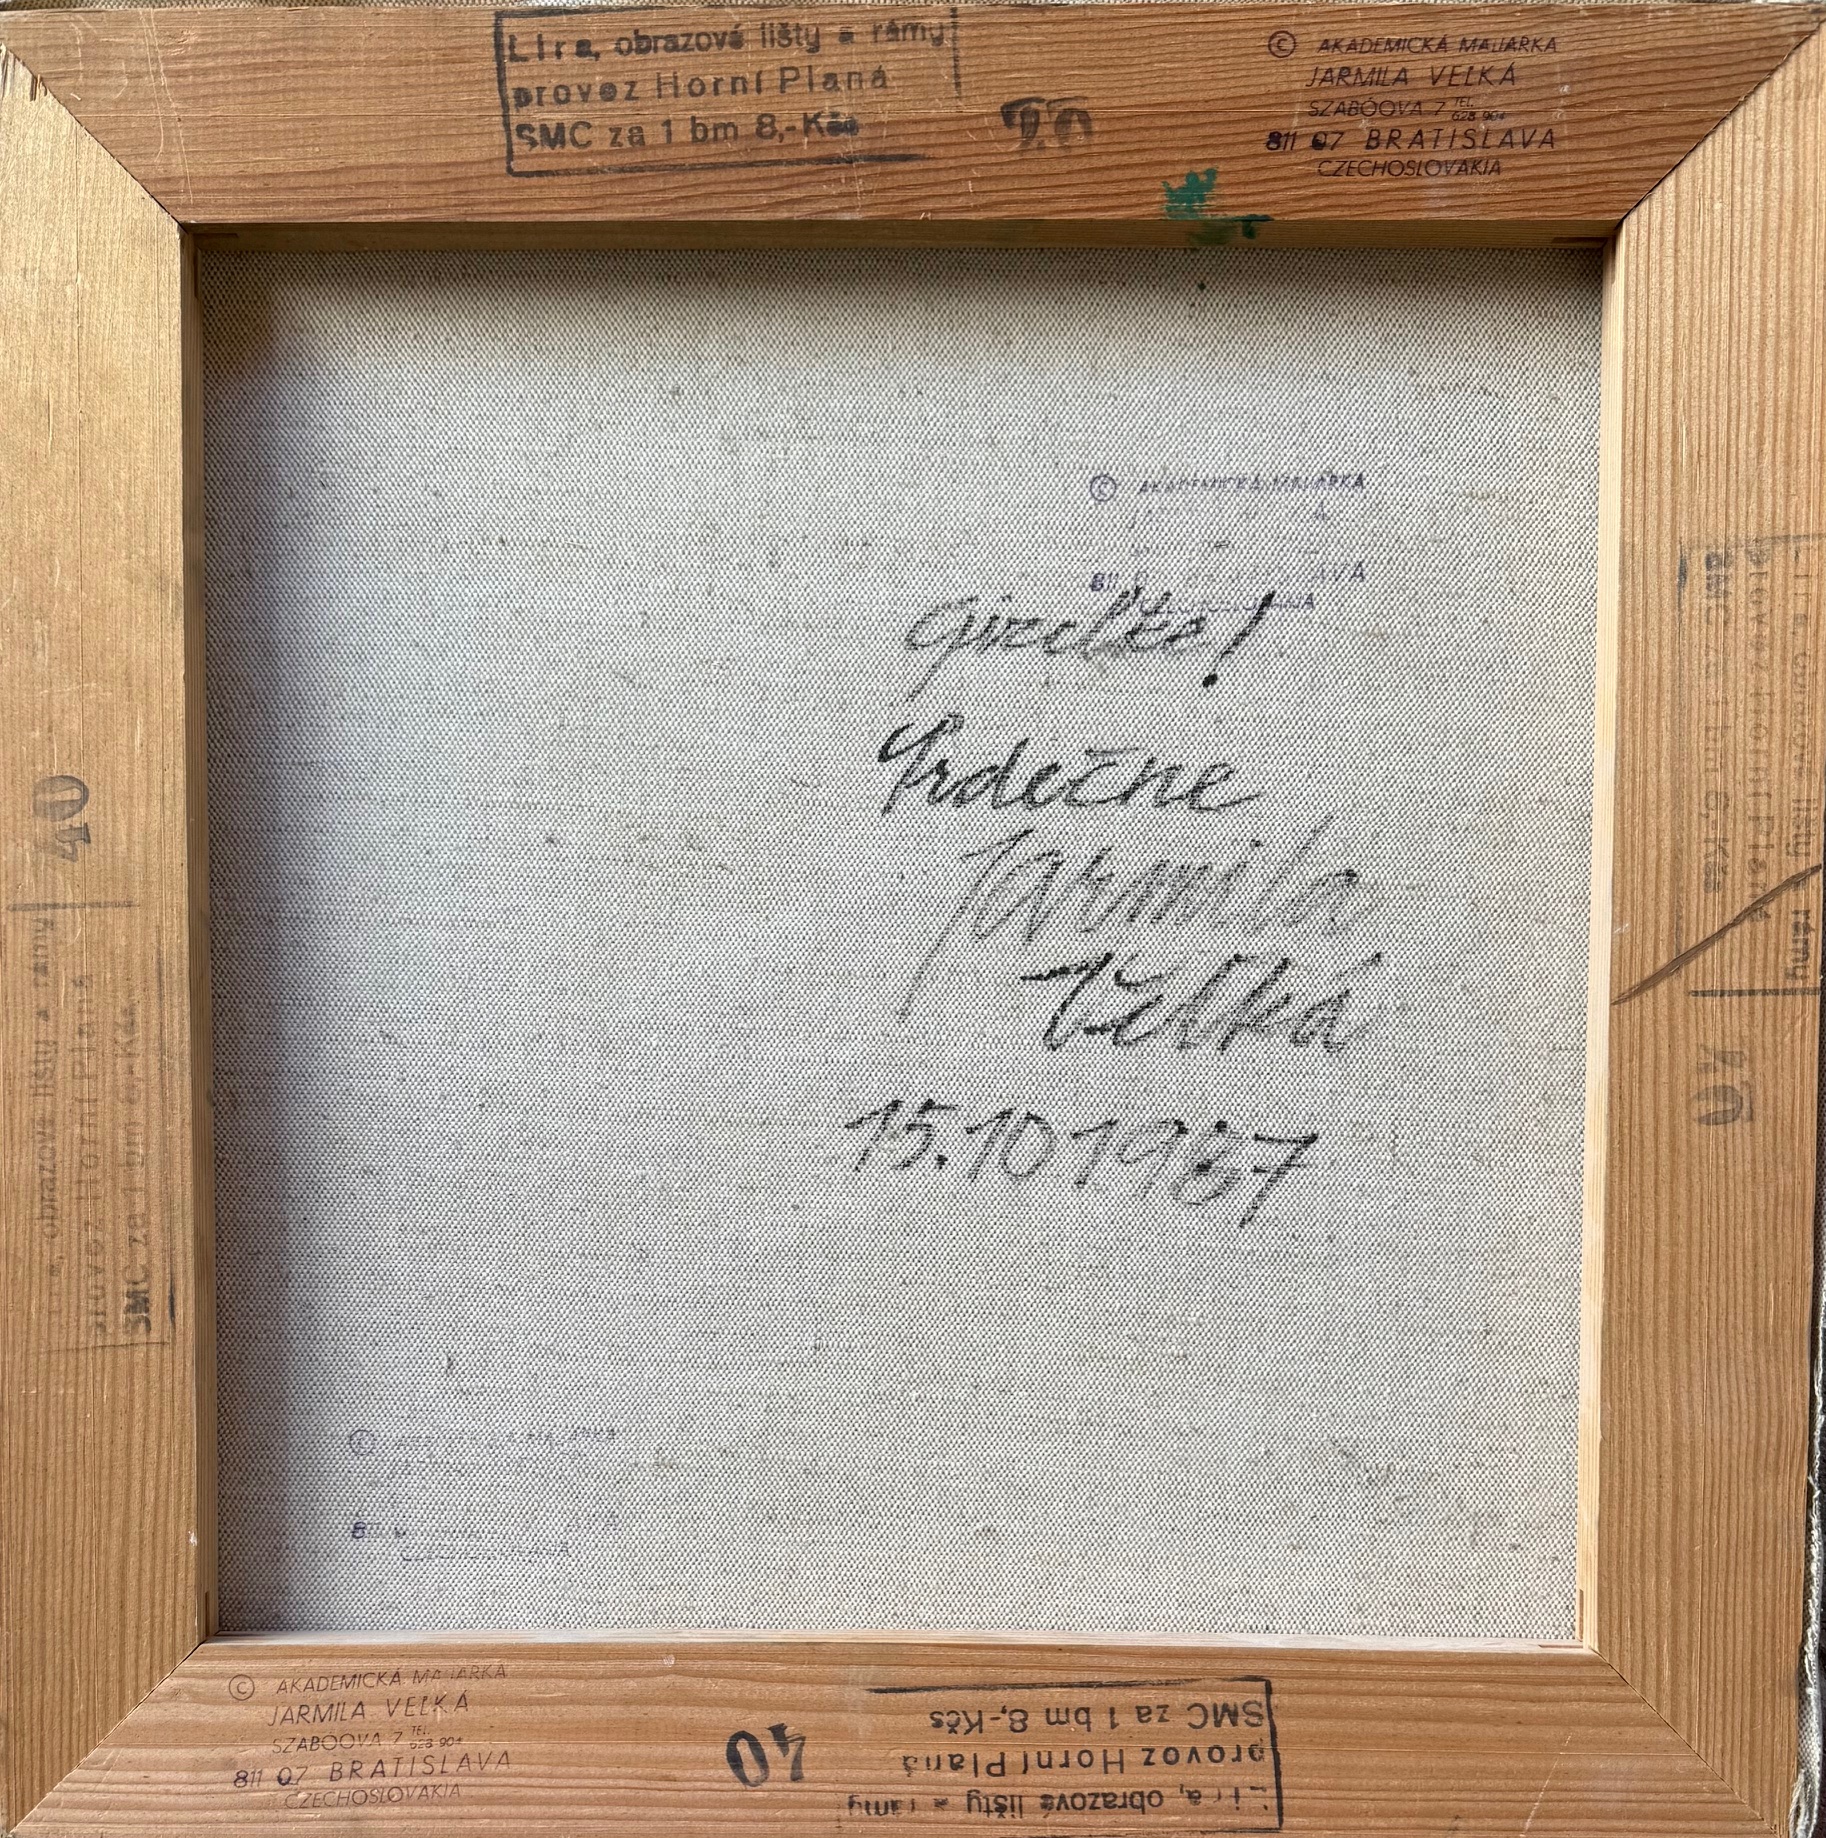 Lira, obrazové lišty a rámy
provoz Horní Planá
SMC za 1 bm 8,-Kčs
© AKADEMICKÁ MALIARKA
JARMILA VEĽKÁ
SZABÓOVA 7 TEL. 628 904
811 07 BRATISLAVA
CZECHOSLOVAKIA
© AKADEMICKÁ MALIARKA
811
Gizelke!
Srdečne
Jarmila
Veľká
15.10 1987
40
obrazové lišty a rámy
provoz Horní Planá
SMC za 1 bm 8,-Kčs
Lira, obrazové lišty a rámy
provoz Horní Planá
SMC za 1 bm 8,-Kčs
40
©
© AKADEMICKÁ MALIARKA
JARMILA VEĽKÁ
SZABÓOVA 7 TEL. 628 904
811 07 BRATISLAVA
CZECHOSLOVAKIA
40
Lira, obrazové lišty a rámy
provoz Horní Planá
SMC za 1 bm 8,-Kčs